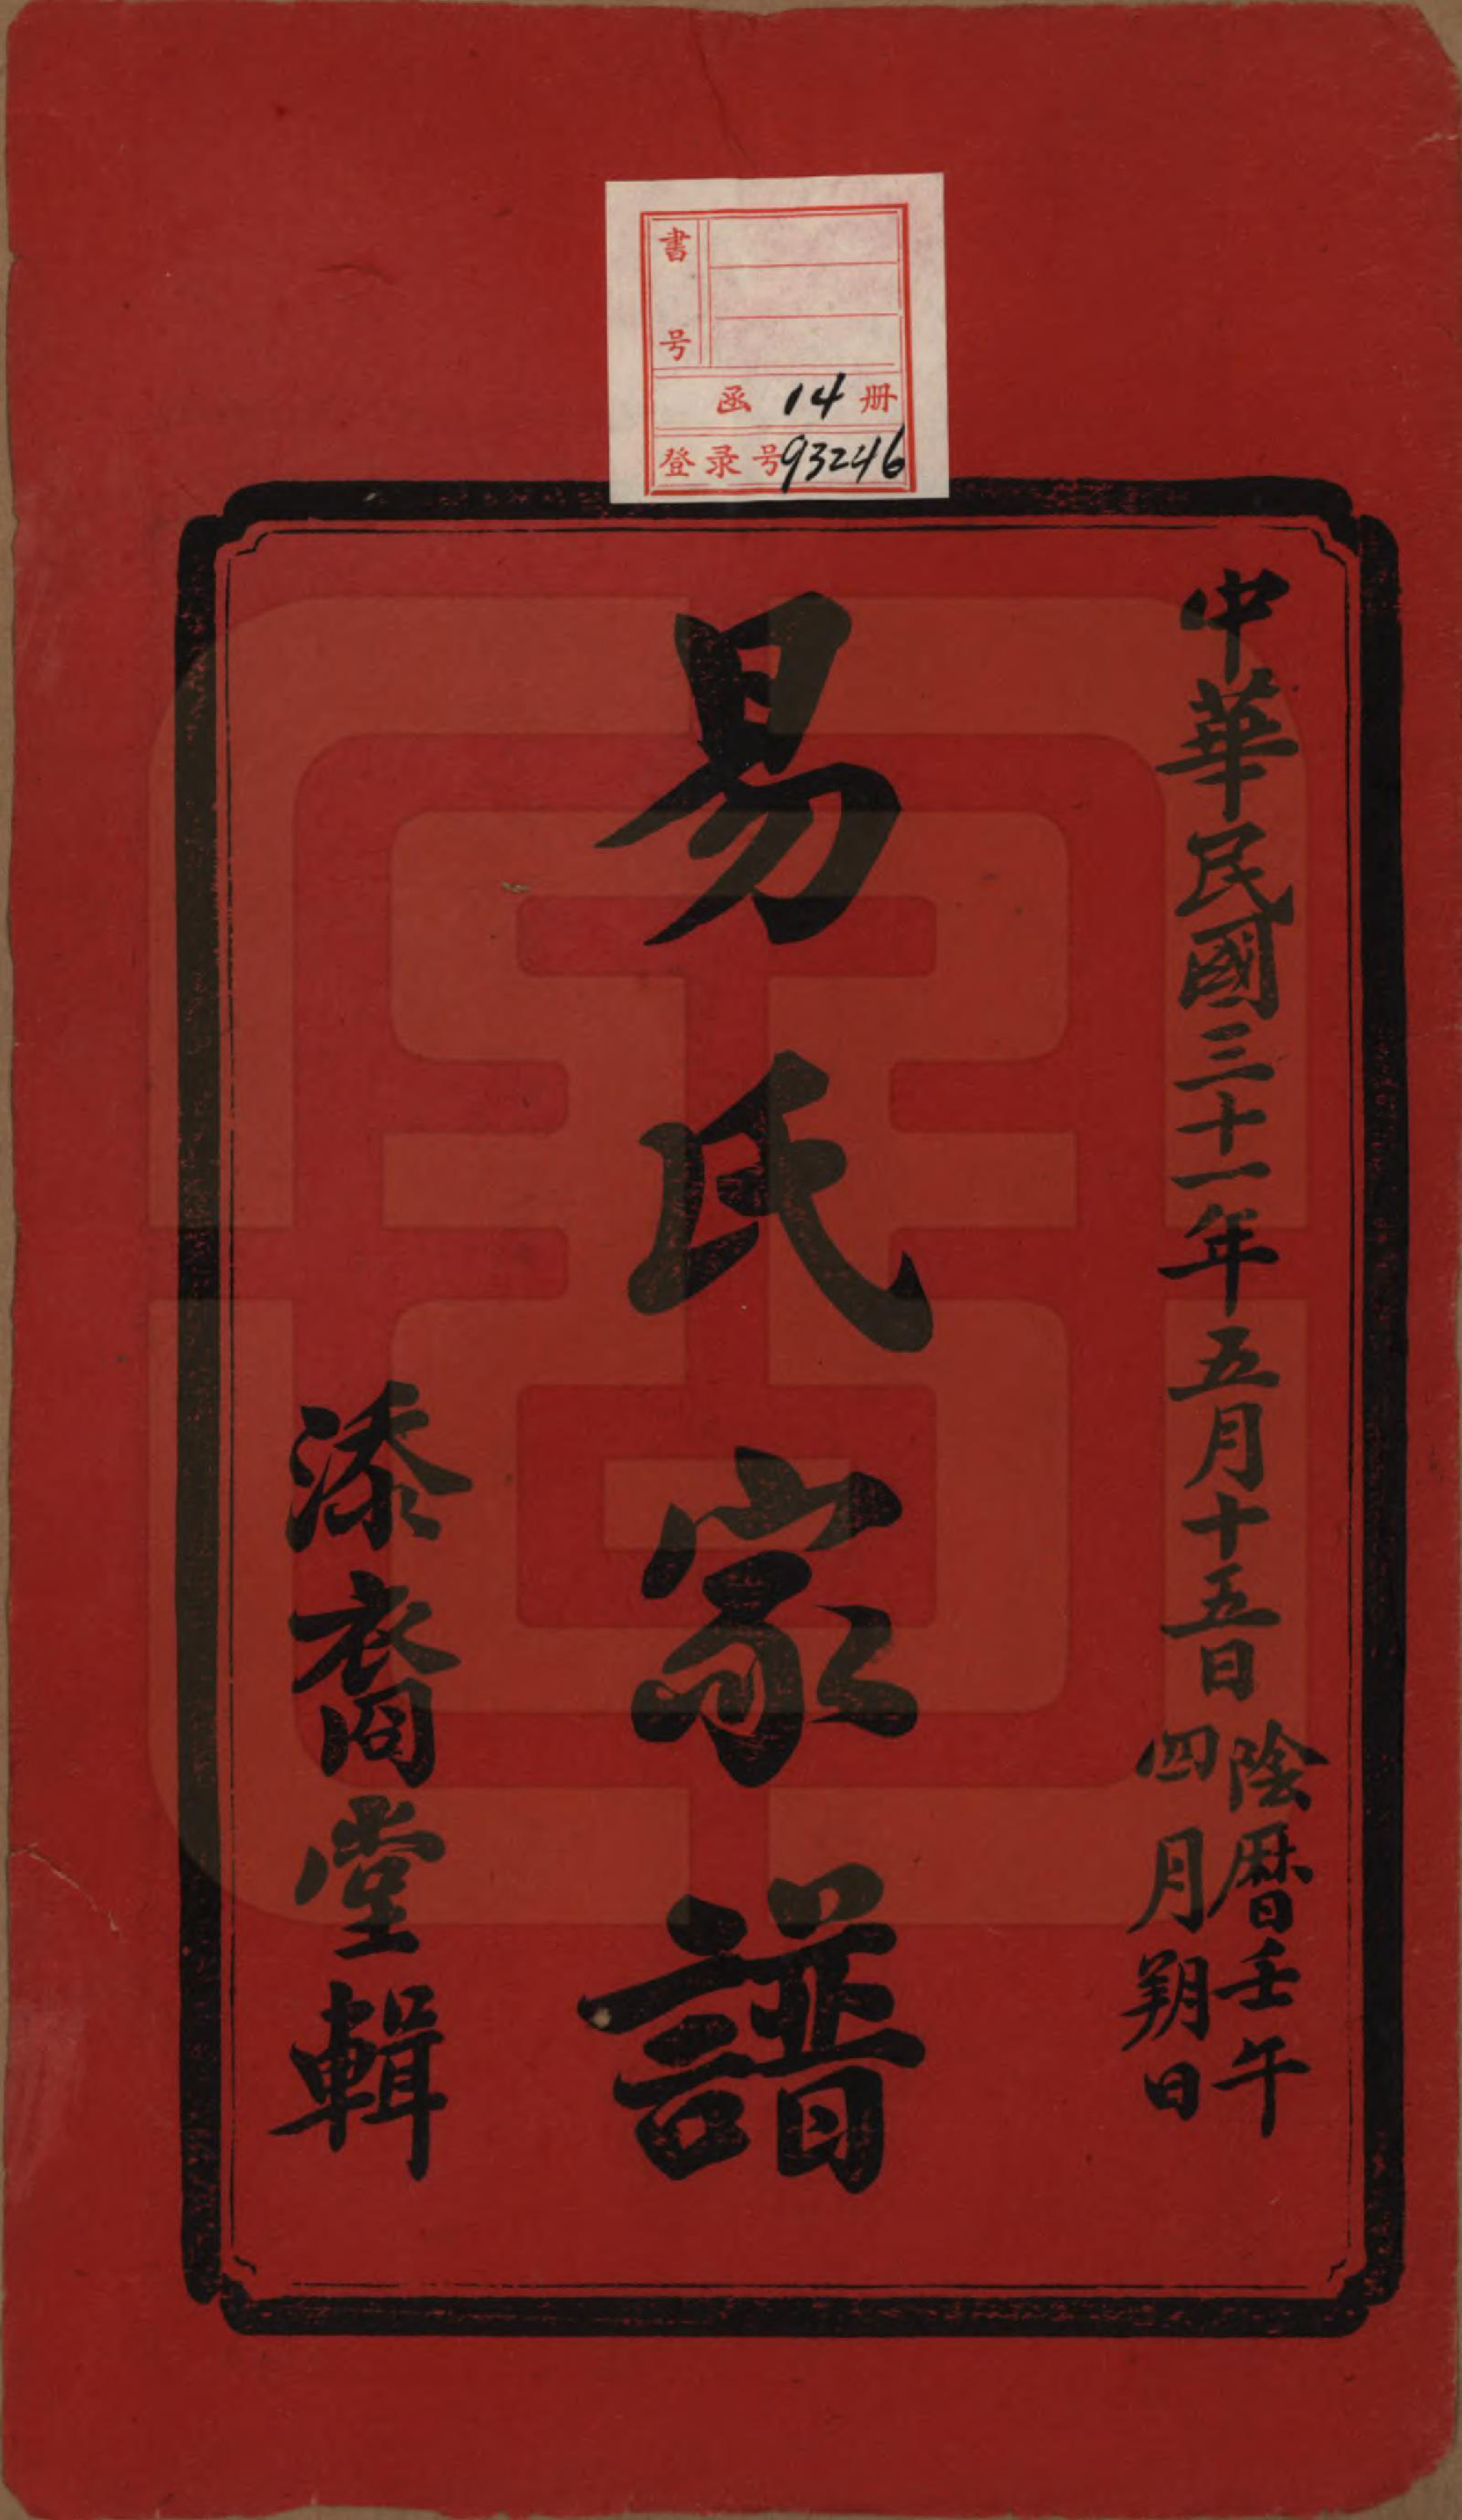 書号
函 14 册
登录号93246
中華民國三十一年五月十五日
陰曆壬午
四月朔日
易氏家譜
漆裔堂輯